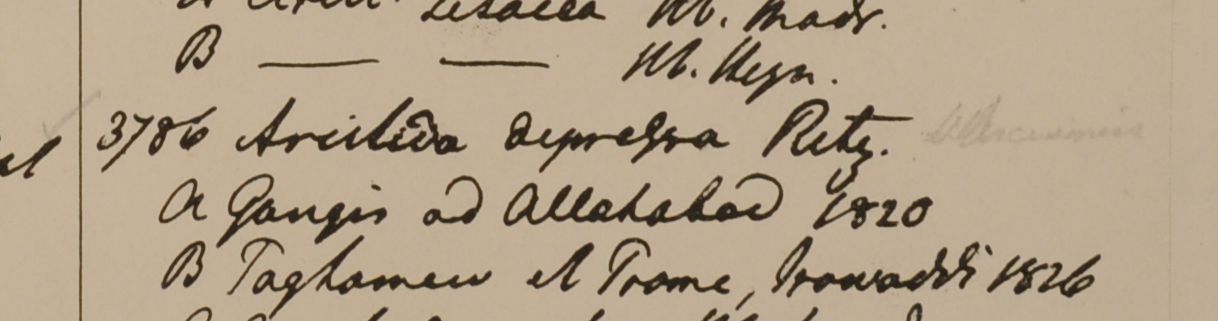 Hb. Madr.
B — — Hb. Heyn.
3786 Aristida depressa Retz.
A Gangis ad Allahabad 1820
B Taghamew et Prome, Irawaddi 1826